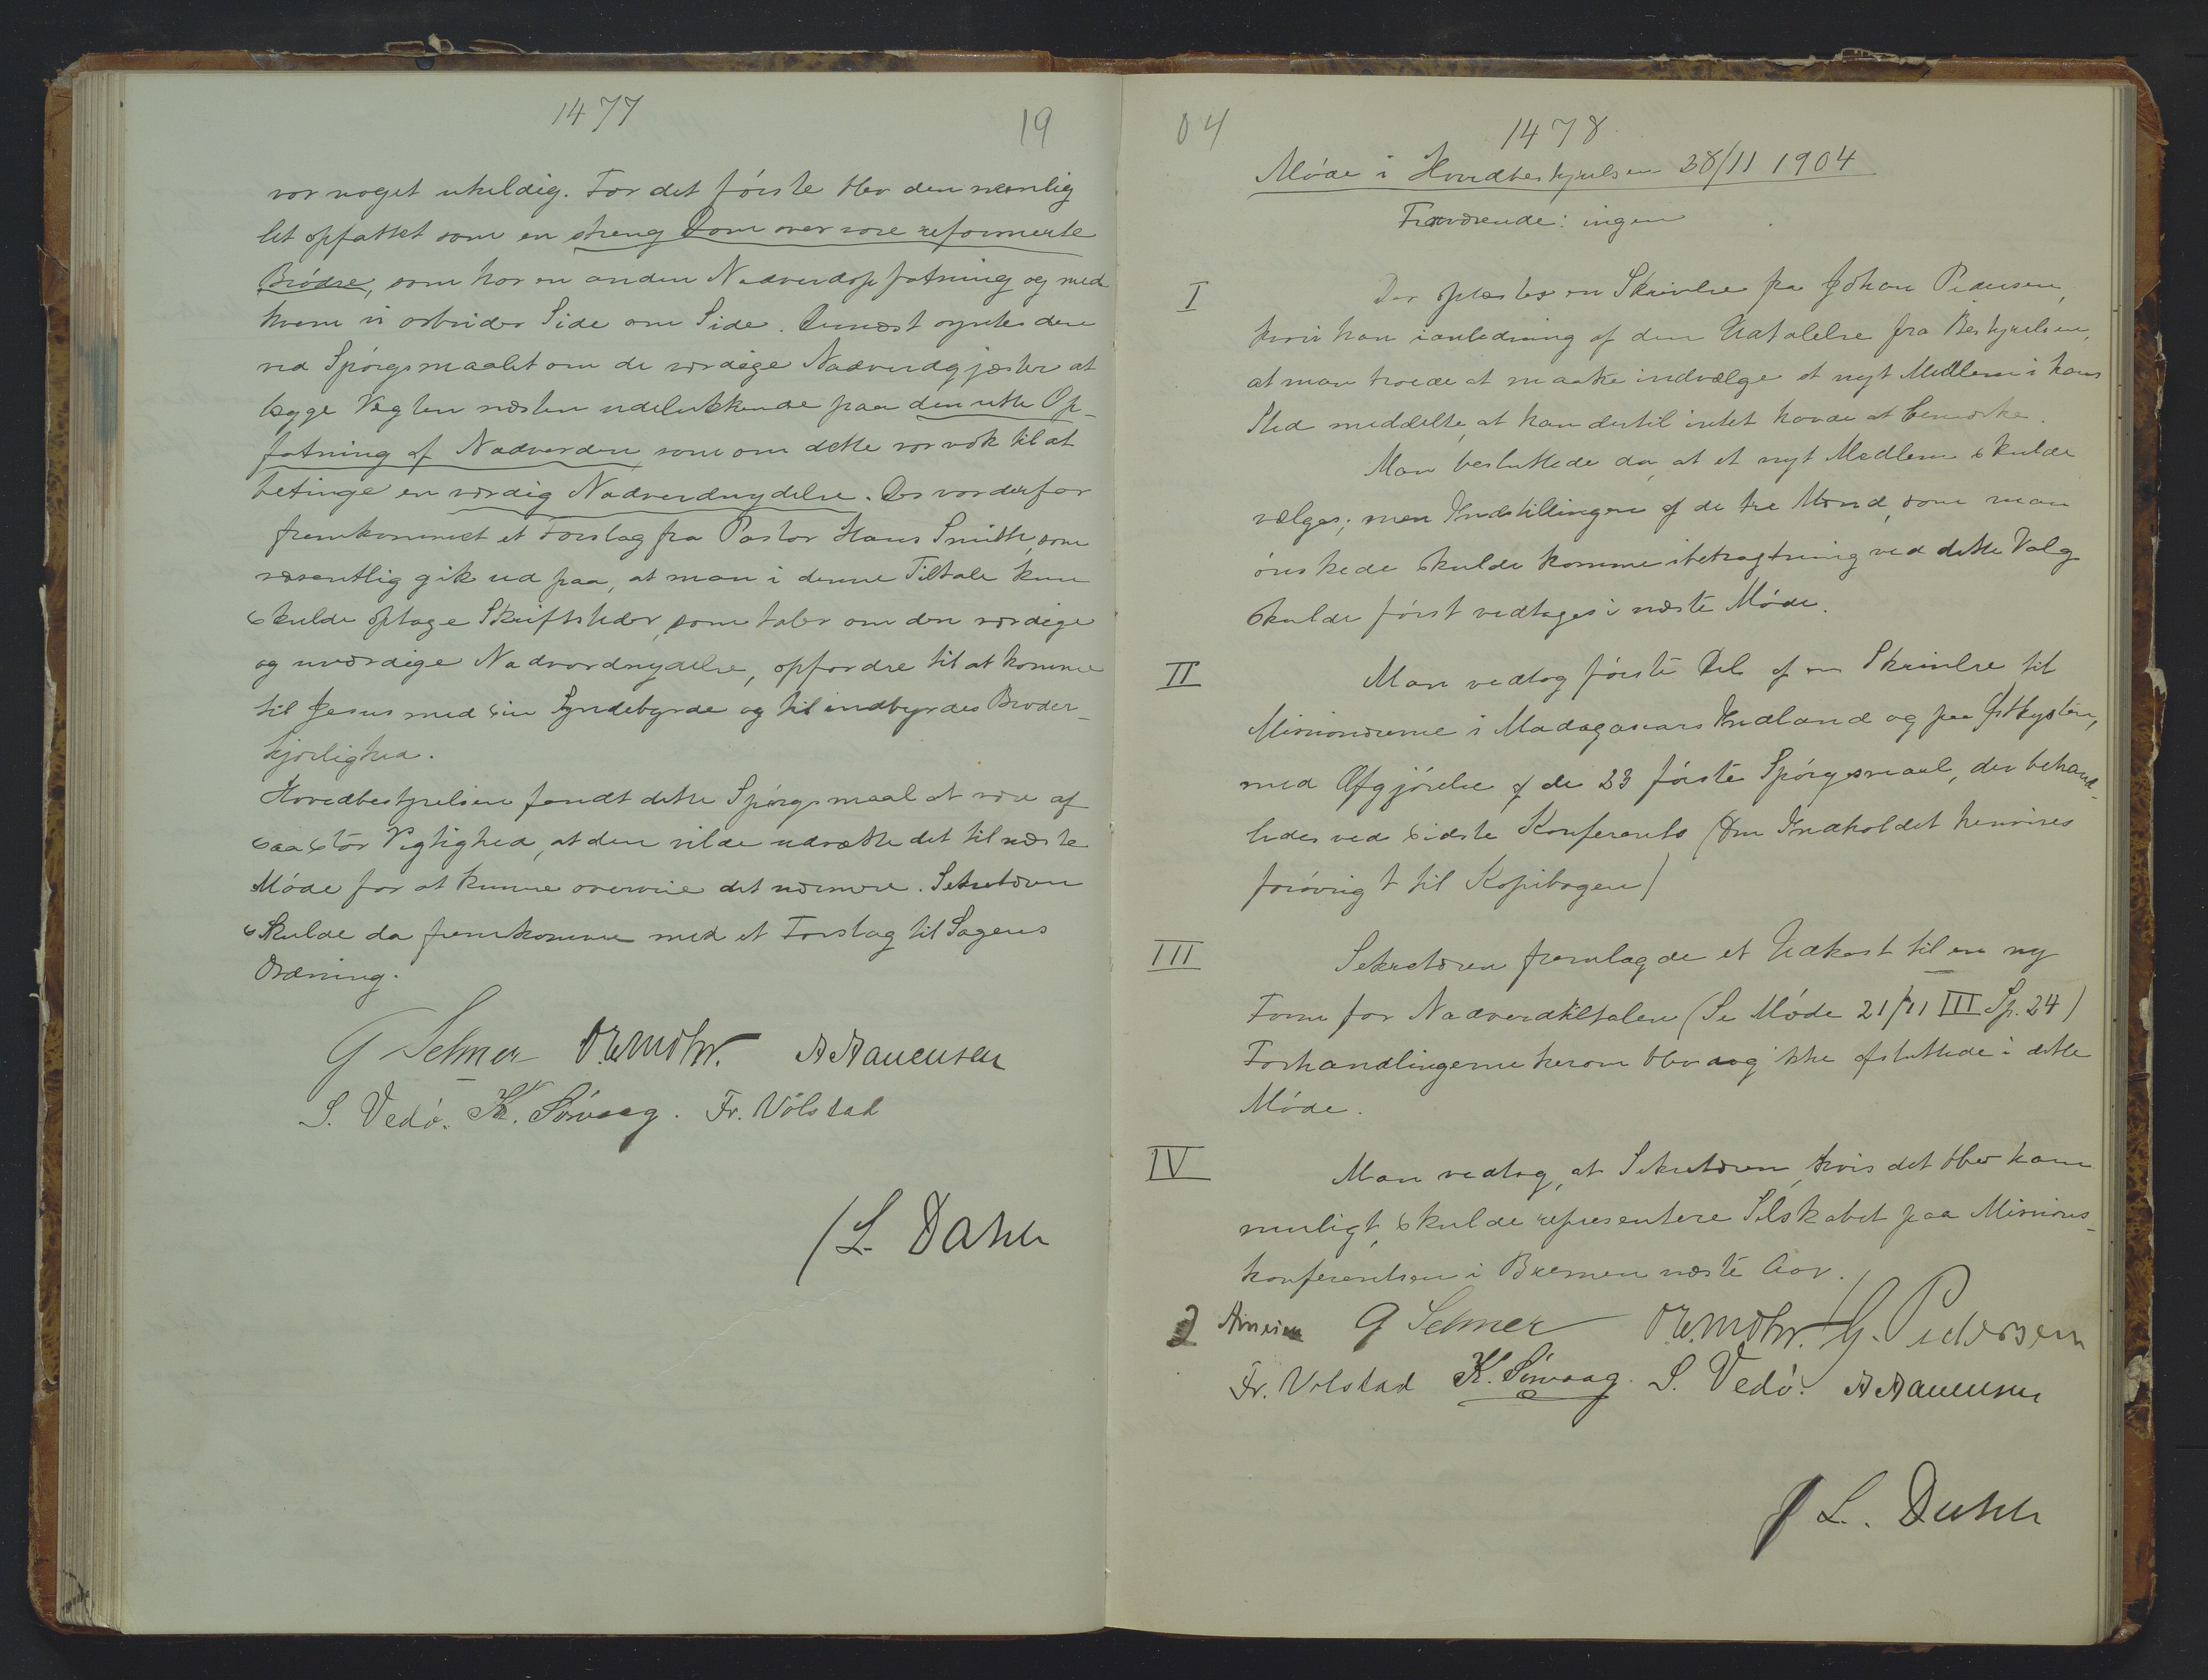 1477
19
var noget uheldig. For det første blev den nemlig
let opfattet som en streng Dom over vore reformerte
Brødre, som har en anden Nadverdopfatning og med
hvem vi arbeider Side om Side. Dernæst syntes den
ved Spørgsmaalet om de værdige Nadverdgjæster at
lægge Vegten næsten udelukkende paa den rette Op-
fatning af Nadverden, som om dette var nok til at
betinge en værdig Nadverdnydelse. Der var derfor
fremkommet et Forslag fra Pastor Hans Smith, som
væsentlig gik ud paa, at man i denne Tiltale kun
skulde optage Skriftsteder, som taler om den værdige
og uværdige Nadverdnydelse, opfordre til at komme
til Jesus med sin Syndebyrde og til indbyrdes Broder-
kjærlighed.
Hovedbestyrelsen fandt dette Spørgsmaal at være af
saa stor Vigtighed, at den vilde udsætte det til næste
Møde for at kunne overveie det nærmere. Sekretæren
skulde da fremkomme med et Forslag til Sagens
Ordning.
G Selmer O.E. Mohr. A Aanensen
S. Vedø. K. Sørvaag. Fr. Vølstad
/L. Dahle
04
1478
Møde i Hovedbestyrelsen 28/11 1904
Fraværende: ingen
I Der oplæstes en Skrivelse fra Johan Pedersen,
hvori han i anledning af den Udtalelse fra Bestyrelsen,
at man troede at maatte indvælge et nyt Medlem i hans
Sted meddelte, at han dertil intet havde at bemærke.
Man besluttede da, at et nyt Medlem skulde
vælges; men Indstillingen af de tre Mænd, som man
ønskede skulde komme i betragtning ved dette Valg
skulde først vedtages i næste Møde.
II Man vedtog første Del af en Skrivelse til
Missionærerne i Madagascars Indland og paa Østkysten,
med Afgjørelse af de 23 første Spørgsmaal, der behand-
ledes ved sidste Konferents (Om Indholdet henvises
forøvrigt til Kopibogen)
III Sekretæren fremlagde et Udkast til en ny
Form for Nadverdtiltalen (Se Møde 21/11 III Sp. 24)
Forhandlingerne herom blev dog ikke afsluttede i dette
Møde.
IV Man vedtog, at Sekretæren, hvis det blev ham
muligt, skulde repræsentere Selskabet paa Missions-
konferentsen i Bremen næste Aar.
G Selmer O.E. Mohr. G. Pedersen
Fr. Vølstad K. Sørvaag. S. Vedø. A Aanensen
/ L. Dahle